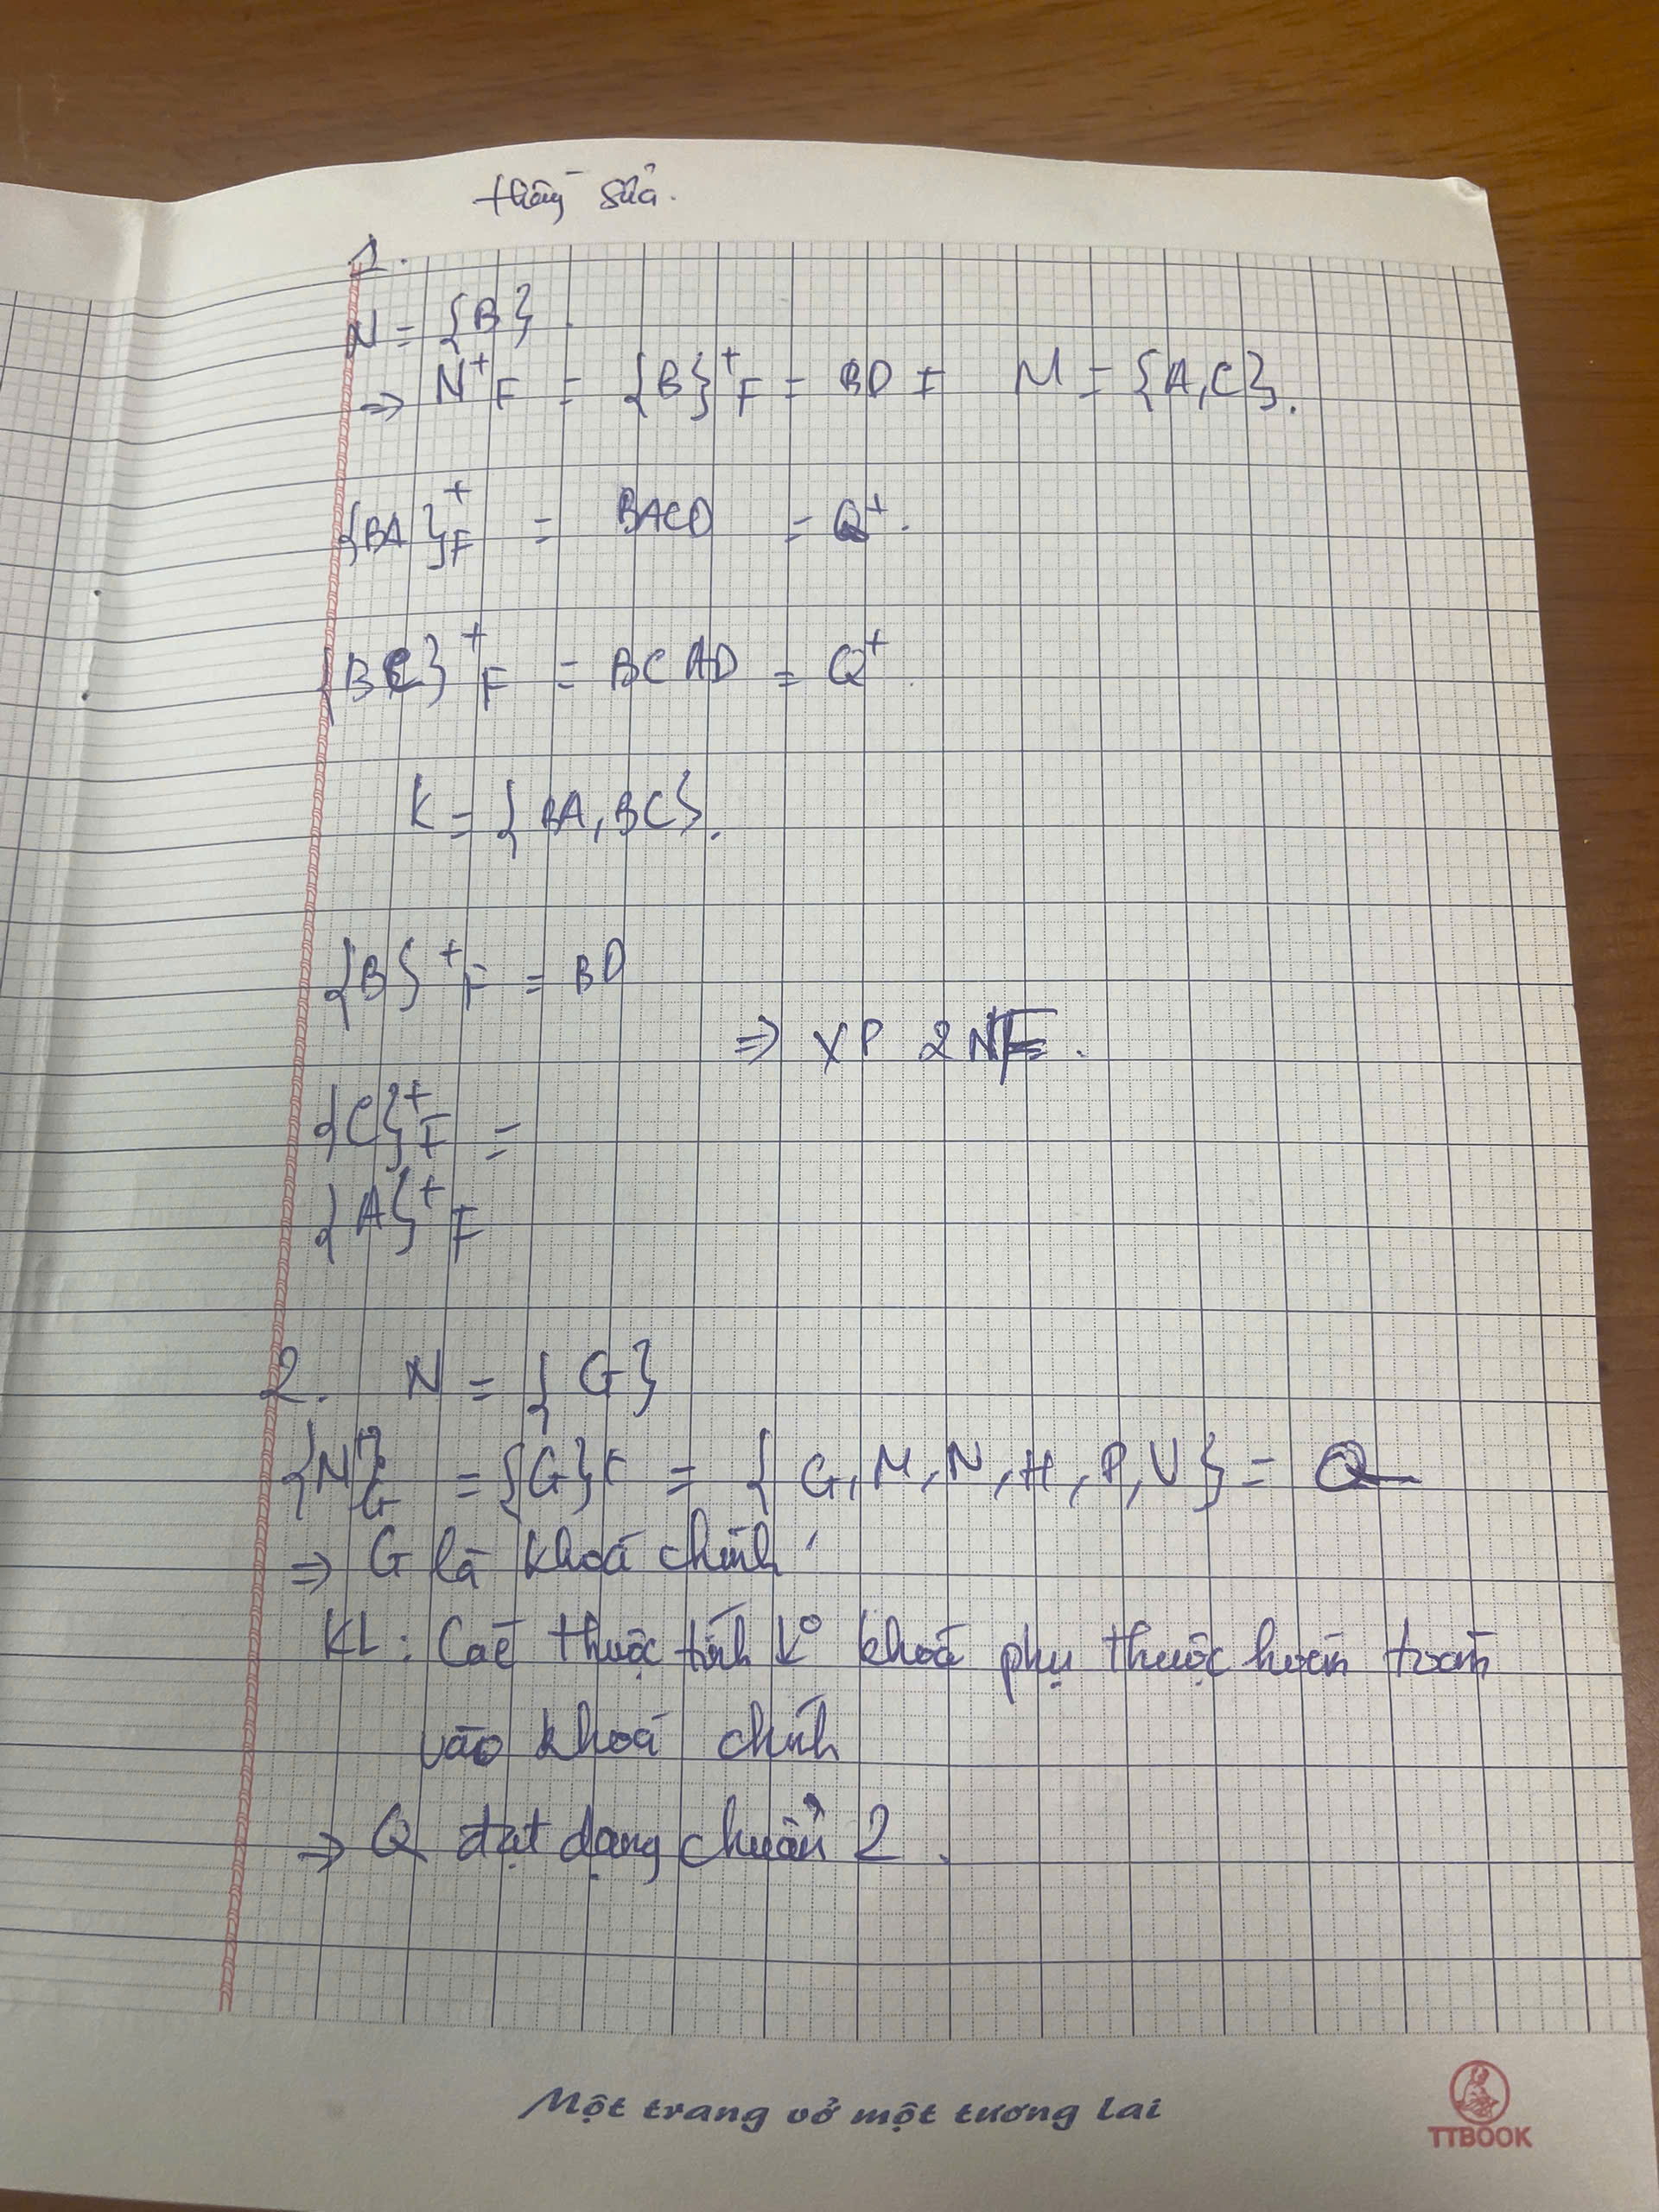 thầy sửa.
1.
N = {B}.
=> N⁺F = {B}⁺F = BD ≠ M = {A,C}.
{BA}⁺F = BACD = Q⁺.
{BC}⁺F = BCAD = Q⁺.
K = {BA, BC}.
{B}⁺F = BD
=> VP 2NF.
{C}⁺F =
{A}⁺F
2. N = {G}
{N}⁺G = {G}F = {G, M, N, H, P, V} = Q
=> G là khoá chính
KL: Các thuộc tính k° khoá phụ thuộc hoàn toàn
vào khoá chính
=> Q đạt dạng chuẩn 2.
Một trang vở một tương lai
TTBOOK